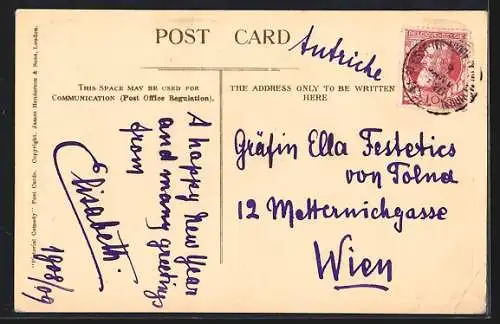 POST CARD
Autriche
THIS SPACE MAY BE USED FOR
COMMUNICATION (Post Office Regulation).
THE ADDRESS ONLY TO BE WRITTEN
HERE
A happy New Year
and many greetings
from
Elisabeth.
1908/09
Gräfin Ella Festetics
von Tolna
12 Metternichgasse
Wien
"Pictorial Comedy" Post Cards. Copyright. James Henderson & Sons, London.
10